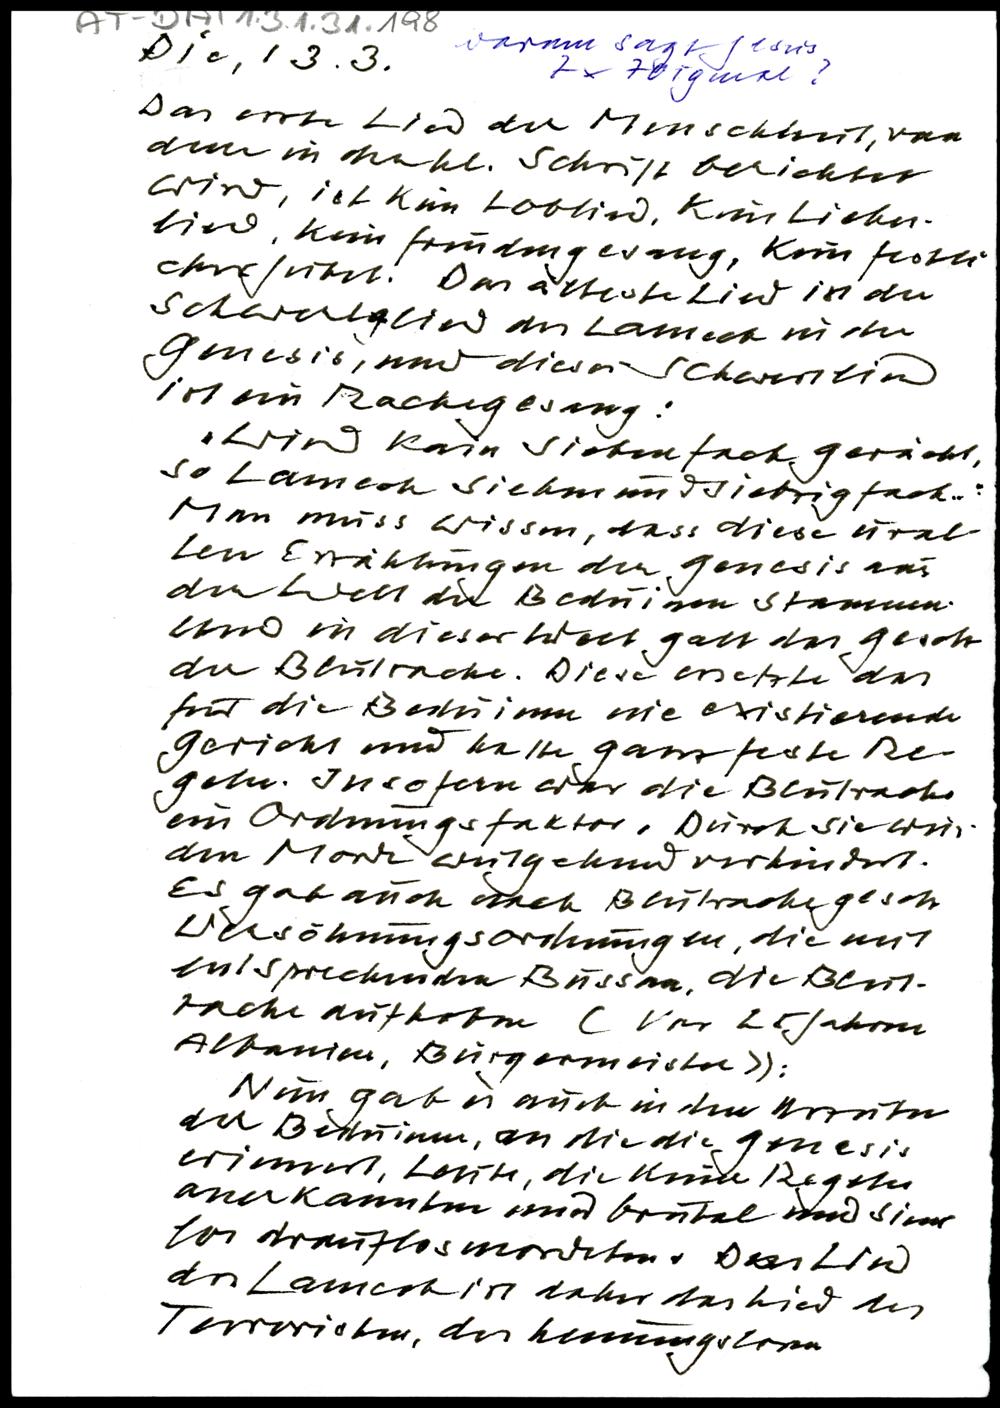 AT-DAI 1.3.1.31.198
Die, 13.3.
warum sagt Jesus
7x 70igmal?
Das erste Lied der Menschheit, von
dem in der hl. Schrift berichtet
wird, ist kein Loblied, kein Liebes-
lied, kein Freudengesang, kein festli
cher Jubel. Das älteste Lied ist das
Schwertlied des Lamech in der
Genesis, und dieses Schwertlied
ist ein Rachegesang:
"Wird Kain siebenfach gerächt,
so Lamech siebenundsiebzigfach.."
Man muss wissen, dass diese ural-
ten Erzählungen der Genesis aus
der Welt der Beduinen stammen.
Und in dieser Welt galt das Gesetz
der Blutrache. Diese ersetzte das
für die Beduinen nie existierende
Gericht und hatte ganz feste Re-
geln. Insofern war die Blutrache
ein Ordnungsfaktor. Durch sie wur-
den Morde weitgehend verhindert.
Es gab auch nach Blutrachegesetz
Versöhnungsordnungen, die mit
entsprechenden Bussen, die Blut-
rache aufhoben (Vor 25 Jahren
Albanien, Bürgermeister)):
Nun gab es auch in den
der Beduinen, an die die Genesis
erinnert, Leute, die keine Regeln
anerkannten und brutal und sinn
los drauflosmordeten. Das Lied
des Lamech ist daher das Lied des
Terroristen, des hemmungslosen